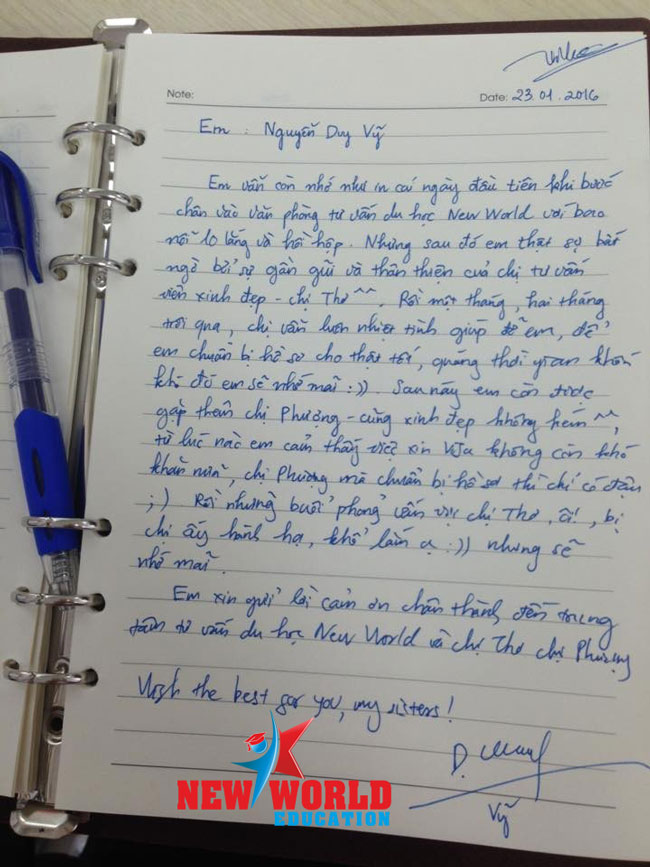 Note:
Date: 23.01.2016
Em : Nguyễn Duy Vỹ
Em vẫn còn nhớ như in cái ngày đầu tiên khi bước
chân vào văn phòng tư vấn du học New World với bao
nỗi lo lắng và hồi hộp. Nhưng sau đó em thật sự bất
ngờ bởi sự gần gũi và thân thiện của chị tư vấn
viên xinh đẹp - chị Thơ ^^. Rồi một tháng, hai tháng
trôi qua, chị vẫn luôn nhiệt tình giúp đỡ em, để
em chuẩn bị hồ sơ cho thật tốt, quãng thời gian khốn
khó đó em sẽ nhớ mãi :)). Sau này em còn được
gặp thêm chị Phượng - cũng xinh đẹp không kém ^^,
từ lúc nào em cảm thấy việc xin Visa không còn khó
khăn nữa, chị Phượng mà chuẩn bị hồ sơ thì chỉ có đậu
;) Rồi những buổi phỏng vấn với chị Thơ, ôi!, bị
chị ấy hành hạ, khổ lắm ạ :)) nhưng sẽ
nhớ mãi.
Em xin gửi lời cảm ơn chân thành đến trung
tâm tư vấn du học New World và chị Thơ chị Phượng
Wish the best for you, my sisters!
Vỹ
NEW WORLD
EDUCATION